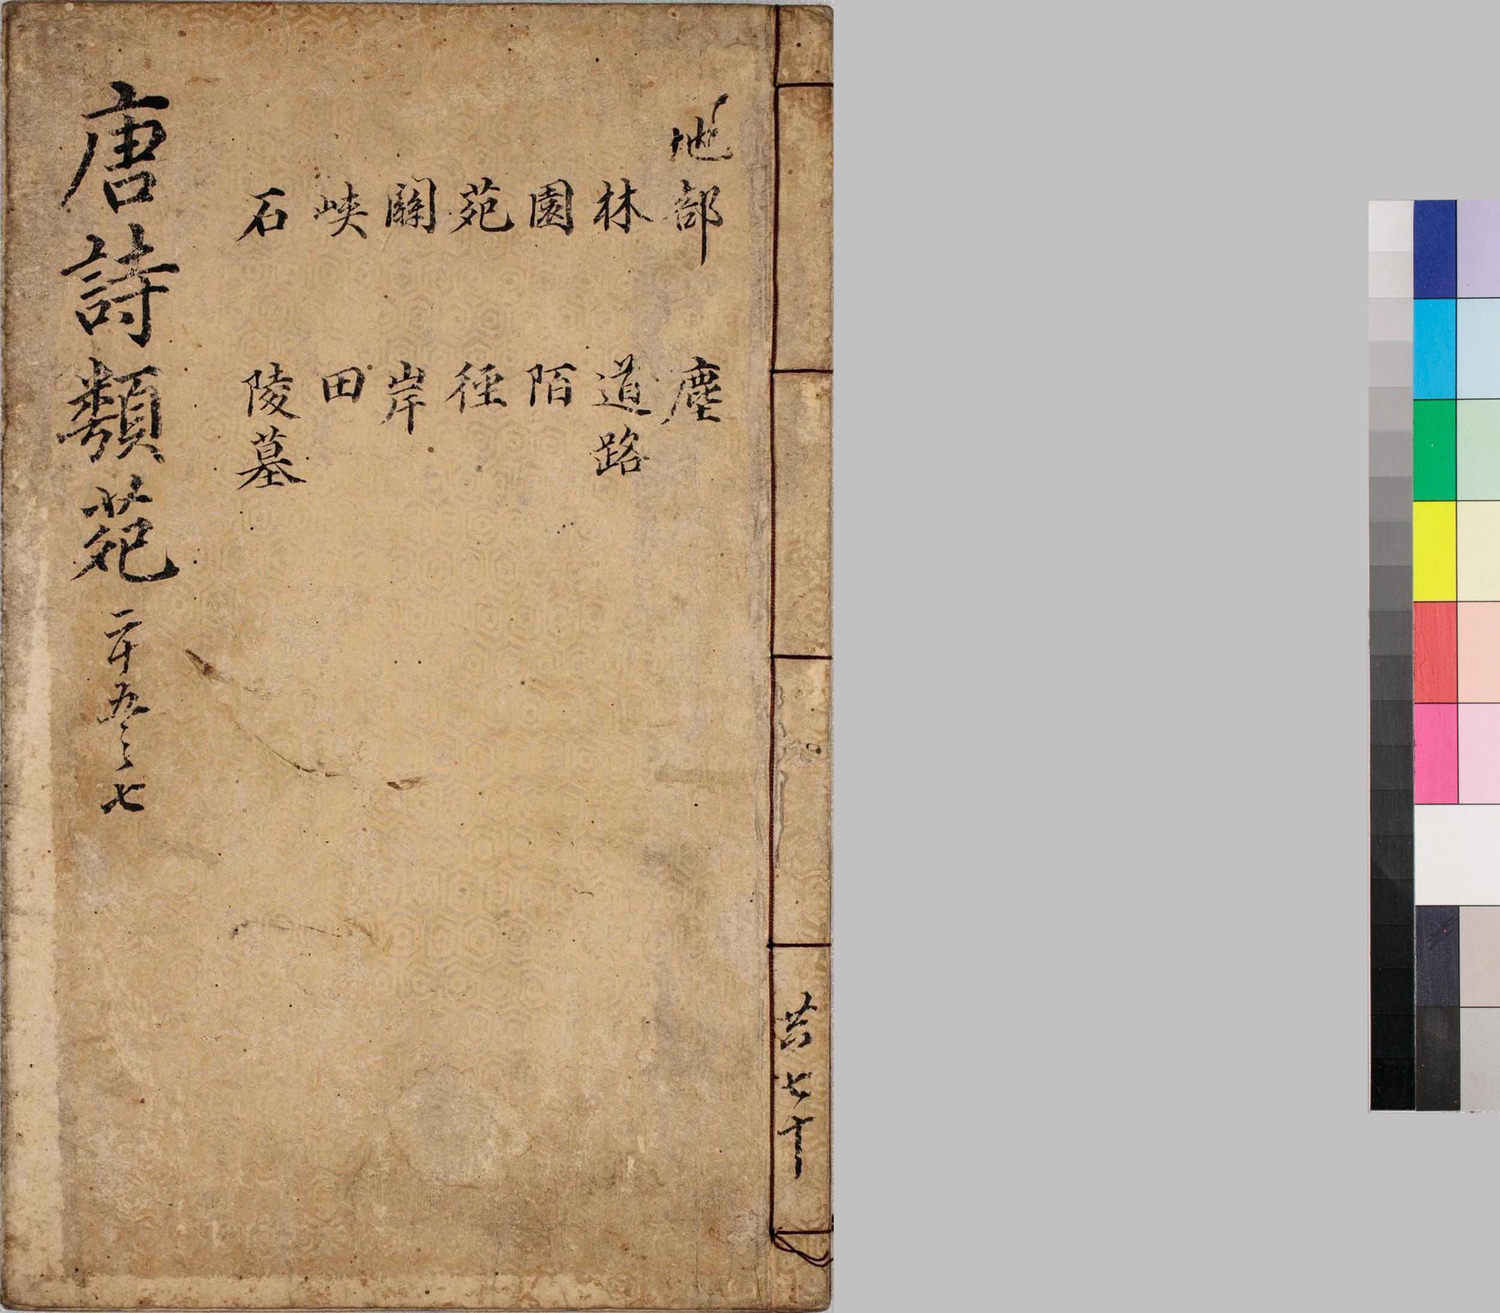 地部 塵
林 道路
園 陌
苑 徑
關 岸
峽 田
石 陵墓
唐詩類苑 二十五之七
共七十